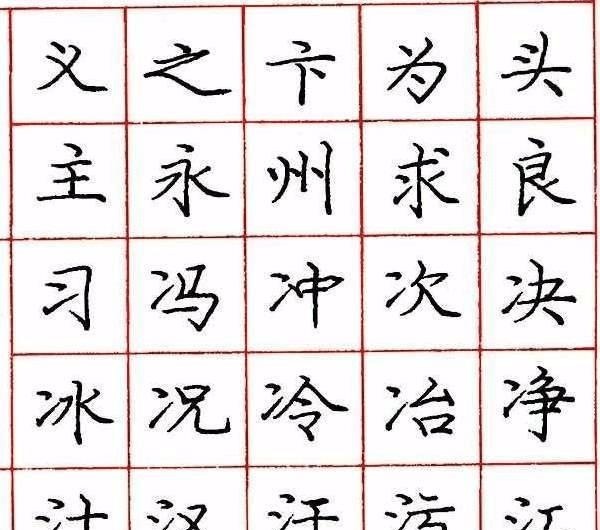 义之卞为头
主永州求良
习冯冲次决
冰况冷冶净
汉汗污江